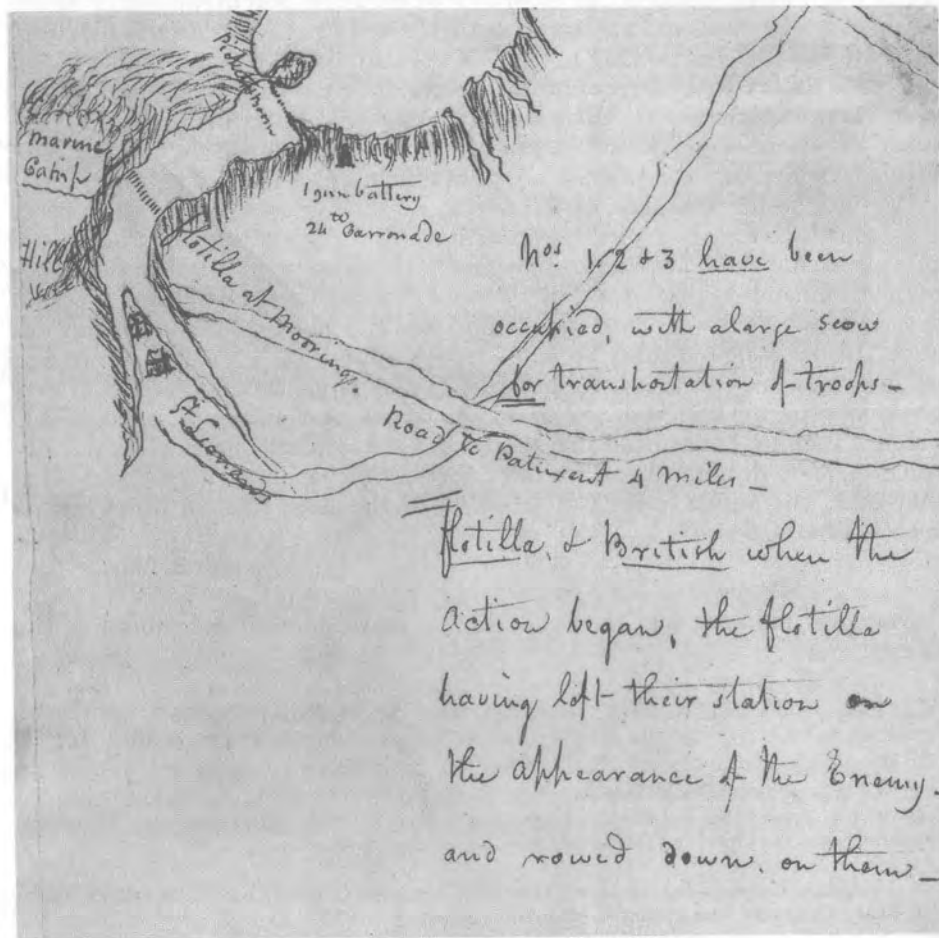 marine
Camp
1 gun battery
24 to Carronade
Hill
flotilla at moorings.
St Leonards
Road to Patuxent 4 miles -
Nos. 1. 2 & 3 have been
occupied, with a large scow
for transportation of troops -
flotilla, & British when the
action began, the flotilla
having left their station on
the appearance of the Enemy.
and rowed down. on them -